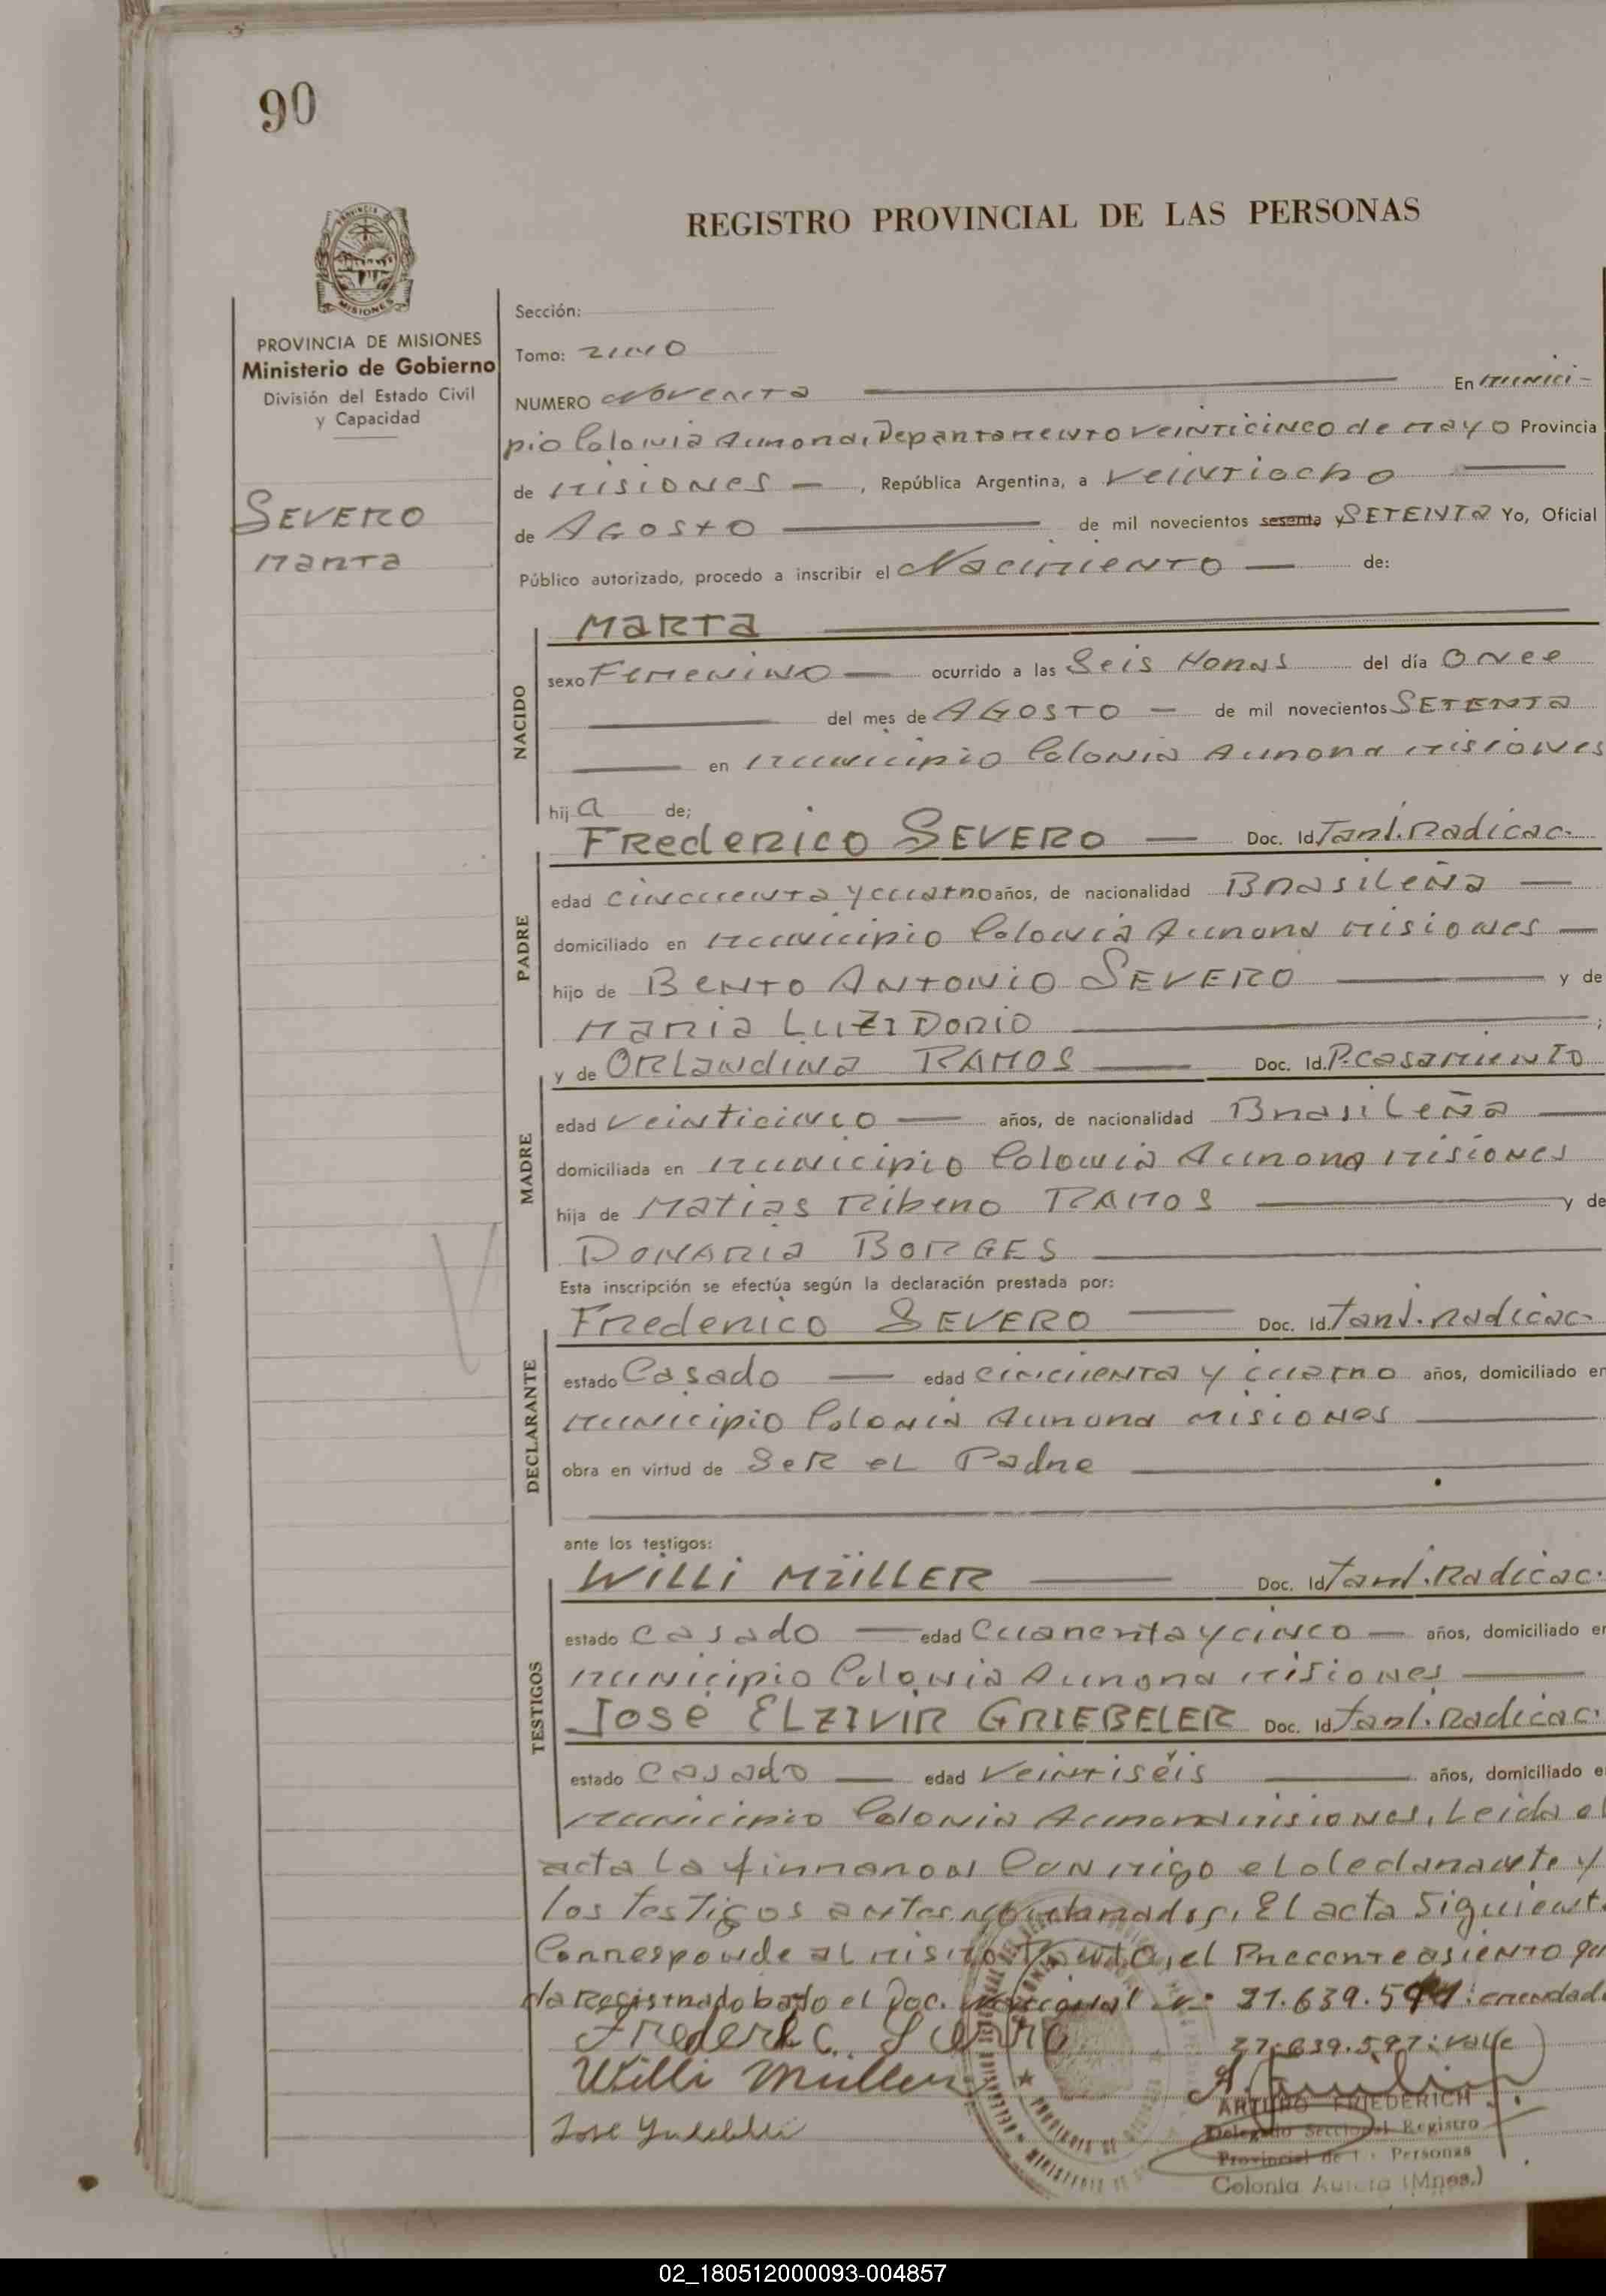 90
REGISTRO PROVINCIAL DE LAS PERSONAS
PROVINCIA DE MISIONES
Ministerio de Gobierno
División del Estado Civil
y Capacidad
SEVERO
Marta
Sección:
Tomo: uno
NUMERO Noventa En munici-
pio Colonia Aurora, Departamento veinticinco de mayo Provincia
de misiones , República Argentina, a veintiocho
de AGosto de mil novecientos sesenta y SETENTa Yo, Oficial
Público autorizado, procedo a inscribir el Nacimiento de:
NACIDO
MaRTa
sexo Femenino ocurrido a las Seis Horas del día Once
del mes de AGOSTO de mil novecientos SETENTa
en municipio Colonia Aurora misiones
hij a de;
PADRE
FRedeRico SEVERO Doc. Id. Tarj. Radicac.
edad cincuenta y cuatro años, de nacionalidad Brasileña
domiciliado en municipio Colonia Aurora misiones
hijo de Bento ANTONiO SEVERO y de
Maria LUZI DORiO ;
MADRE
y de ORLandina RAMOS Doc. Id. P.casamiento
edad veinticinco años, de nacionalidad Brasileña
domiciliada en municipio Colonia Aurora misiones
hija de Matias Ribero RAMOS y de
DONARia BORGES
Esta inscripción se efectúa según la declaración prestada por:
DECLARANTE
Frederico SEVERO Doc. Id. Tarj. Radicac.
estado Casado edad cincuenta y cuatro años, domiciliado en
municipio Colonia Aurora misiones
obra en virtud de SeR eL Padre
ante los testigos:
TESTIGOS
WiLLi MüLLER Doc. Id. Tarj. Radicac.
estado casado edad Cuarenta y cinco años, domiciliado en
municipio Colonia Aurora misiones
José ELZIVIR GRIEBELER Doc. Id. Tarj. Radicac.
estado Casado edad Veintiséis años, domiciliado e
municipio Colonia Aurora misiones, Leida el
acta La firmaron Conmigo el declarante y
los Testigos antes El acta Siguient
Corresponde al mismo Tomo, el Precente asiento qu
da Registrado bajo el Doc. Nacional Nº 21.639.5 : enendad
639.597: valle
Frederic Severo
Willi Müller
José
ARTURO FRIEDERICH
Delegado Seccional Registro
Provincial de l Personas
Colonia Aurora (Mnes.)
02_180512000093-004857